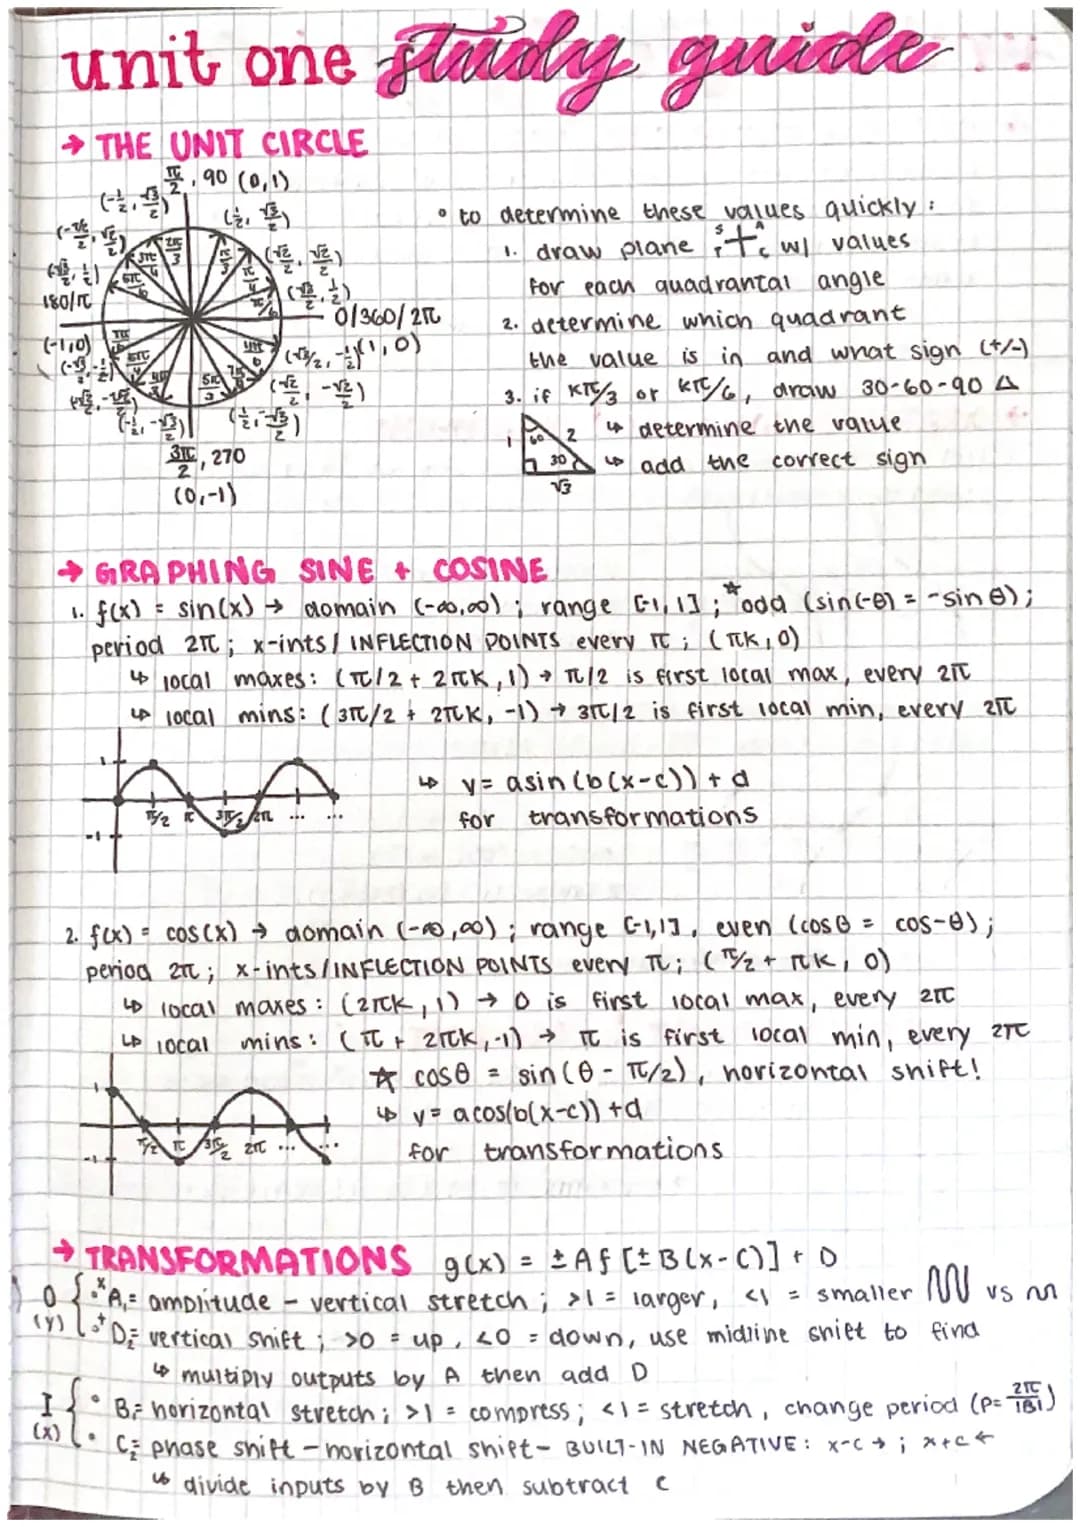 unit one study guide
→ THE UNIT CIRCLE
π/2, 90 (0,1)
(-1/2, √3/2)
(1/2, √3/2)
(√2/2, √2/2)
(√3/2, 1/2)
180/π
0/360/2π
(-1,0)
(1,0)
(1/2, -√3/2)
3π/2, 270
(0,-1)
° to determine these values quickly:
1. draw plane S A T C w/ values
for each quadrantal angle
2. determine which quadrant
the value is in and what sign (+/-)
3. if kπ/3 or kπ/6, draw 30-60-90 △
↳ determine the value
↳ add the correct sign
1 60 2
30
√3
→ GRAPHING SINE + COSINE
1. f(x) = sin(x) → domain (-∞,∞); range [-1,1]; *odd (sin(-θ) = -sin θ);
period 2π; x-ints/ INFLECTION POINTS every π; (πk, 0)
↳ local maxes: (π/2 + 2πk, 1) → π/2 is first local max, every 2π
↳ local mins: (3π/2 + 2πk, -1) → 3π/2 is first local min, every 2π
1
π/2 π 3π/2 2π ... ...
-1
↳ y = asin(b(x-c)) + d
for transformations
2. f(x) = cos(x) → domain (-∞,∞); range [-1,1], even (cosθ = cos-θ);
period 2π; x-ints/INFLECTION POINTS every π; (π/2 + πk, 0)
↳ local maxes: (2πk, 1) → 0 is first local max, every 2π
↳ local mins: (π + 2πk, -1) → π is first local min, every 2π
☆ cosθ = sin(θ - π/2), horizontal shift!
↳ y = acos(b(x-c)) + d
for transformations
1
π/2 π 3π/2 2π ... ...
-1
→ TRANSFORMATIONS g(x) = ± A f [± B(x-C)] + D
O (y) { • x A₁ = amplitude - vertical stretch; >1 = larger, <1 = smaller vs
• + D₂ = vertical shift; >0 = up, <0 = down, use midline shift to find
↳ multiply outputs by A then add D
I (x) { • B₁ = horizontal stretch; >1 = compress; <1 = stretch, change period (P = 2π/|B|)
• C₂ = phase shift - horizontal shift - BUILT-IN NEGATIVE: x-c →; x+c ←
↳ divide inputs by B then subtract C